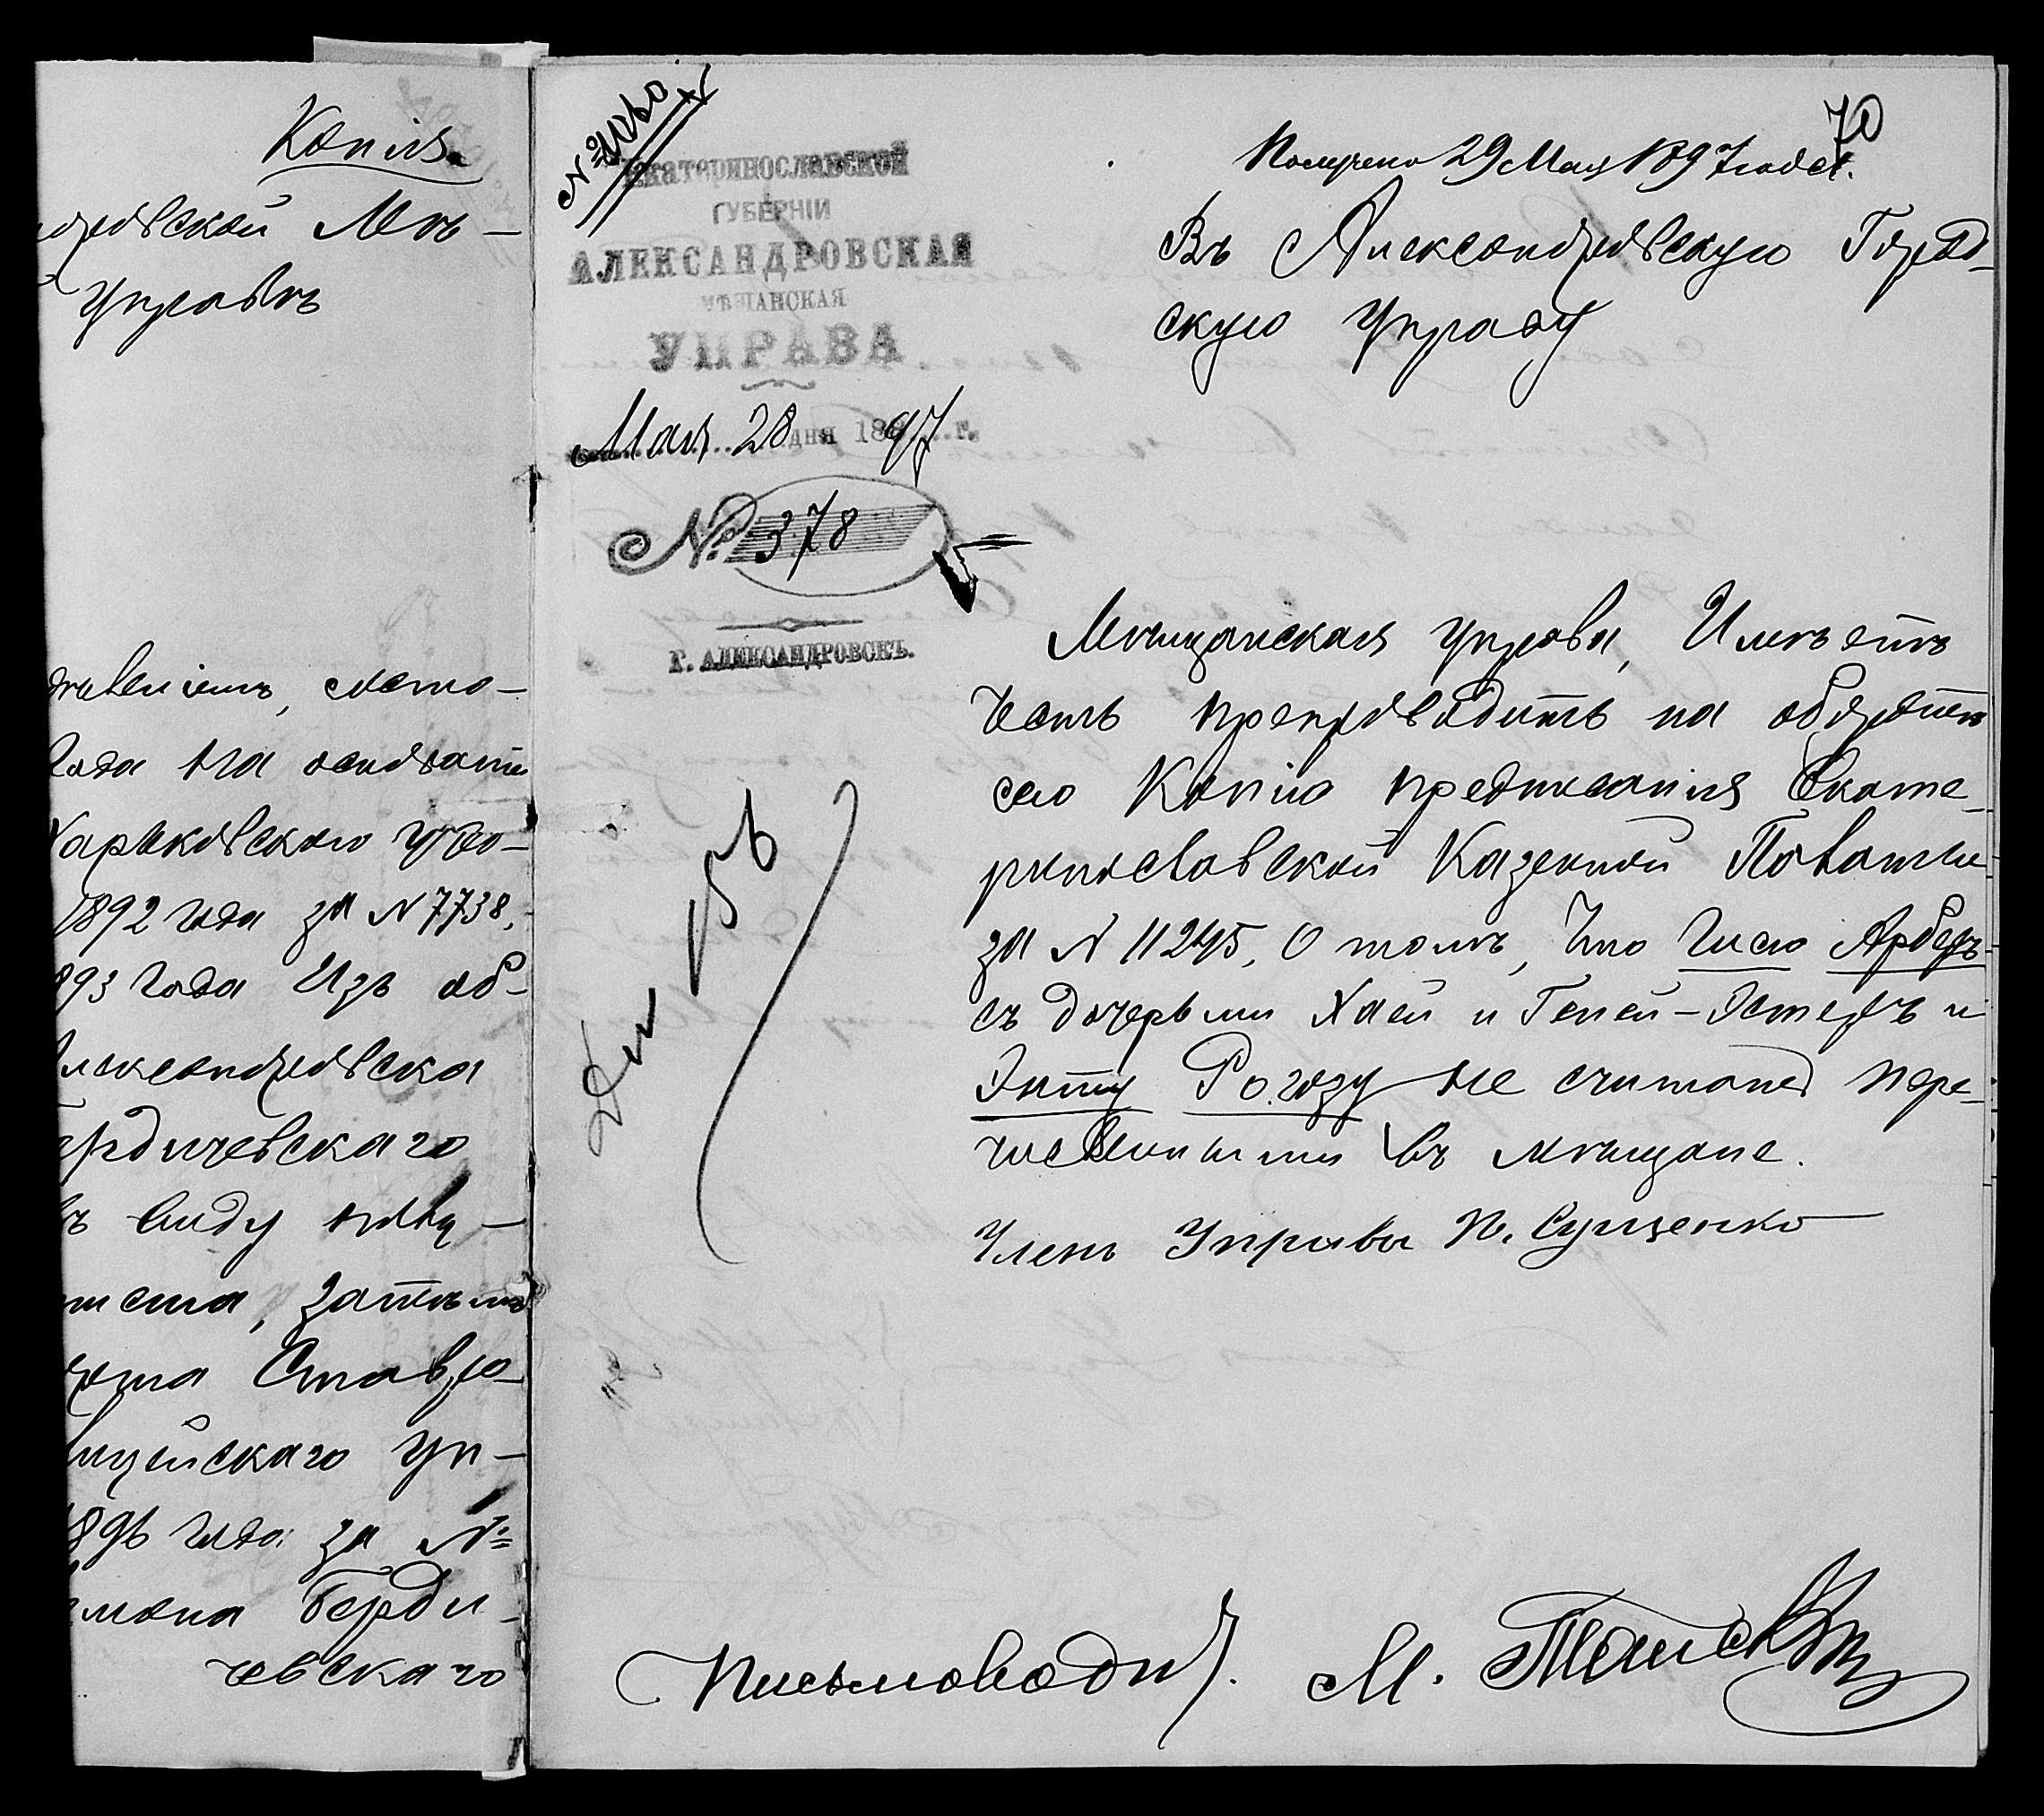 Копія
Мѣ-
Управѣ
семо-
года на основаніи
Харьковскаго
1892 года за N 7738,
893 года Изъ об-
Александровска
ердичевскаго
виду
затѣмъ
Ставро-
Уп-
года за №
Берди-
чевскаго
70
Екатеринославской
ГУБЕРНІИ
АЛЕКСАНДРОВСКАЯ
МѢЩАНСКАЯ
УПРАВА
Мая 28 дня 1897 г.
№ 378
Г. АЛЕКСАНДРОВСКЪ.
Получено 29 Мая 1897 года.
Въ Александровскую Город-
скую Управу
Мѣщанская Управа, Имѣетъ
Честь препроводить на оборотѣ
сего Копію предписанія Екате-
ринославской Казенной Палаты
за N 11245, О томъ, Что Гисю Арберъ
съ дочерьми Хаей и Геней-Эстеръ и
Энту Рогозу не считать пере-
численными въ мѣщане.
Членъ Управы П. Сущенко
Къ дѣлу
Письмоводит. М.